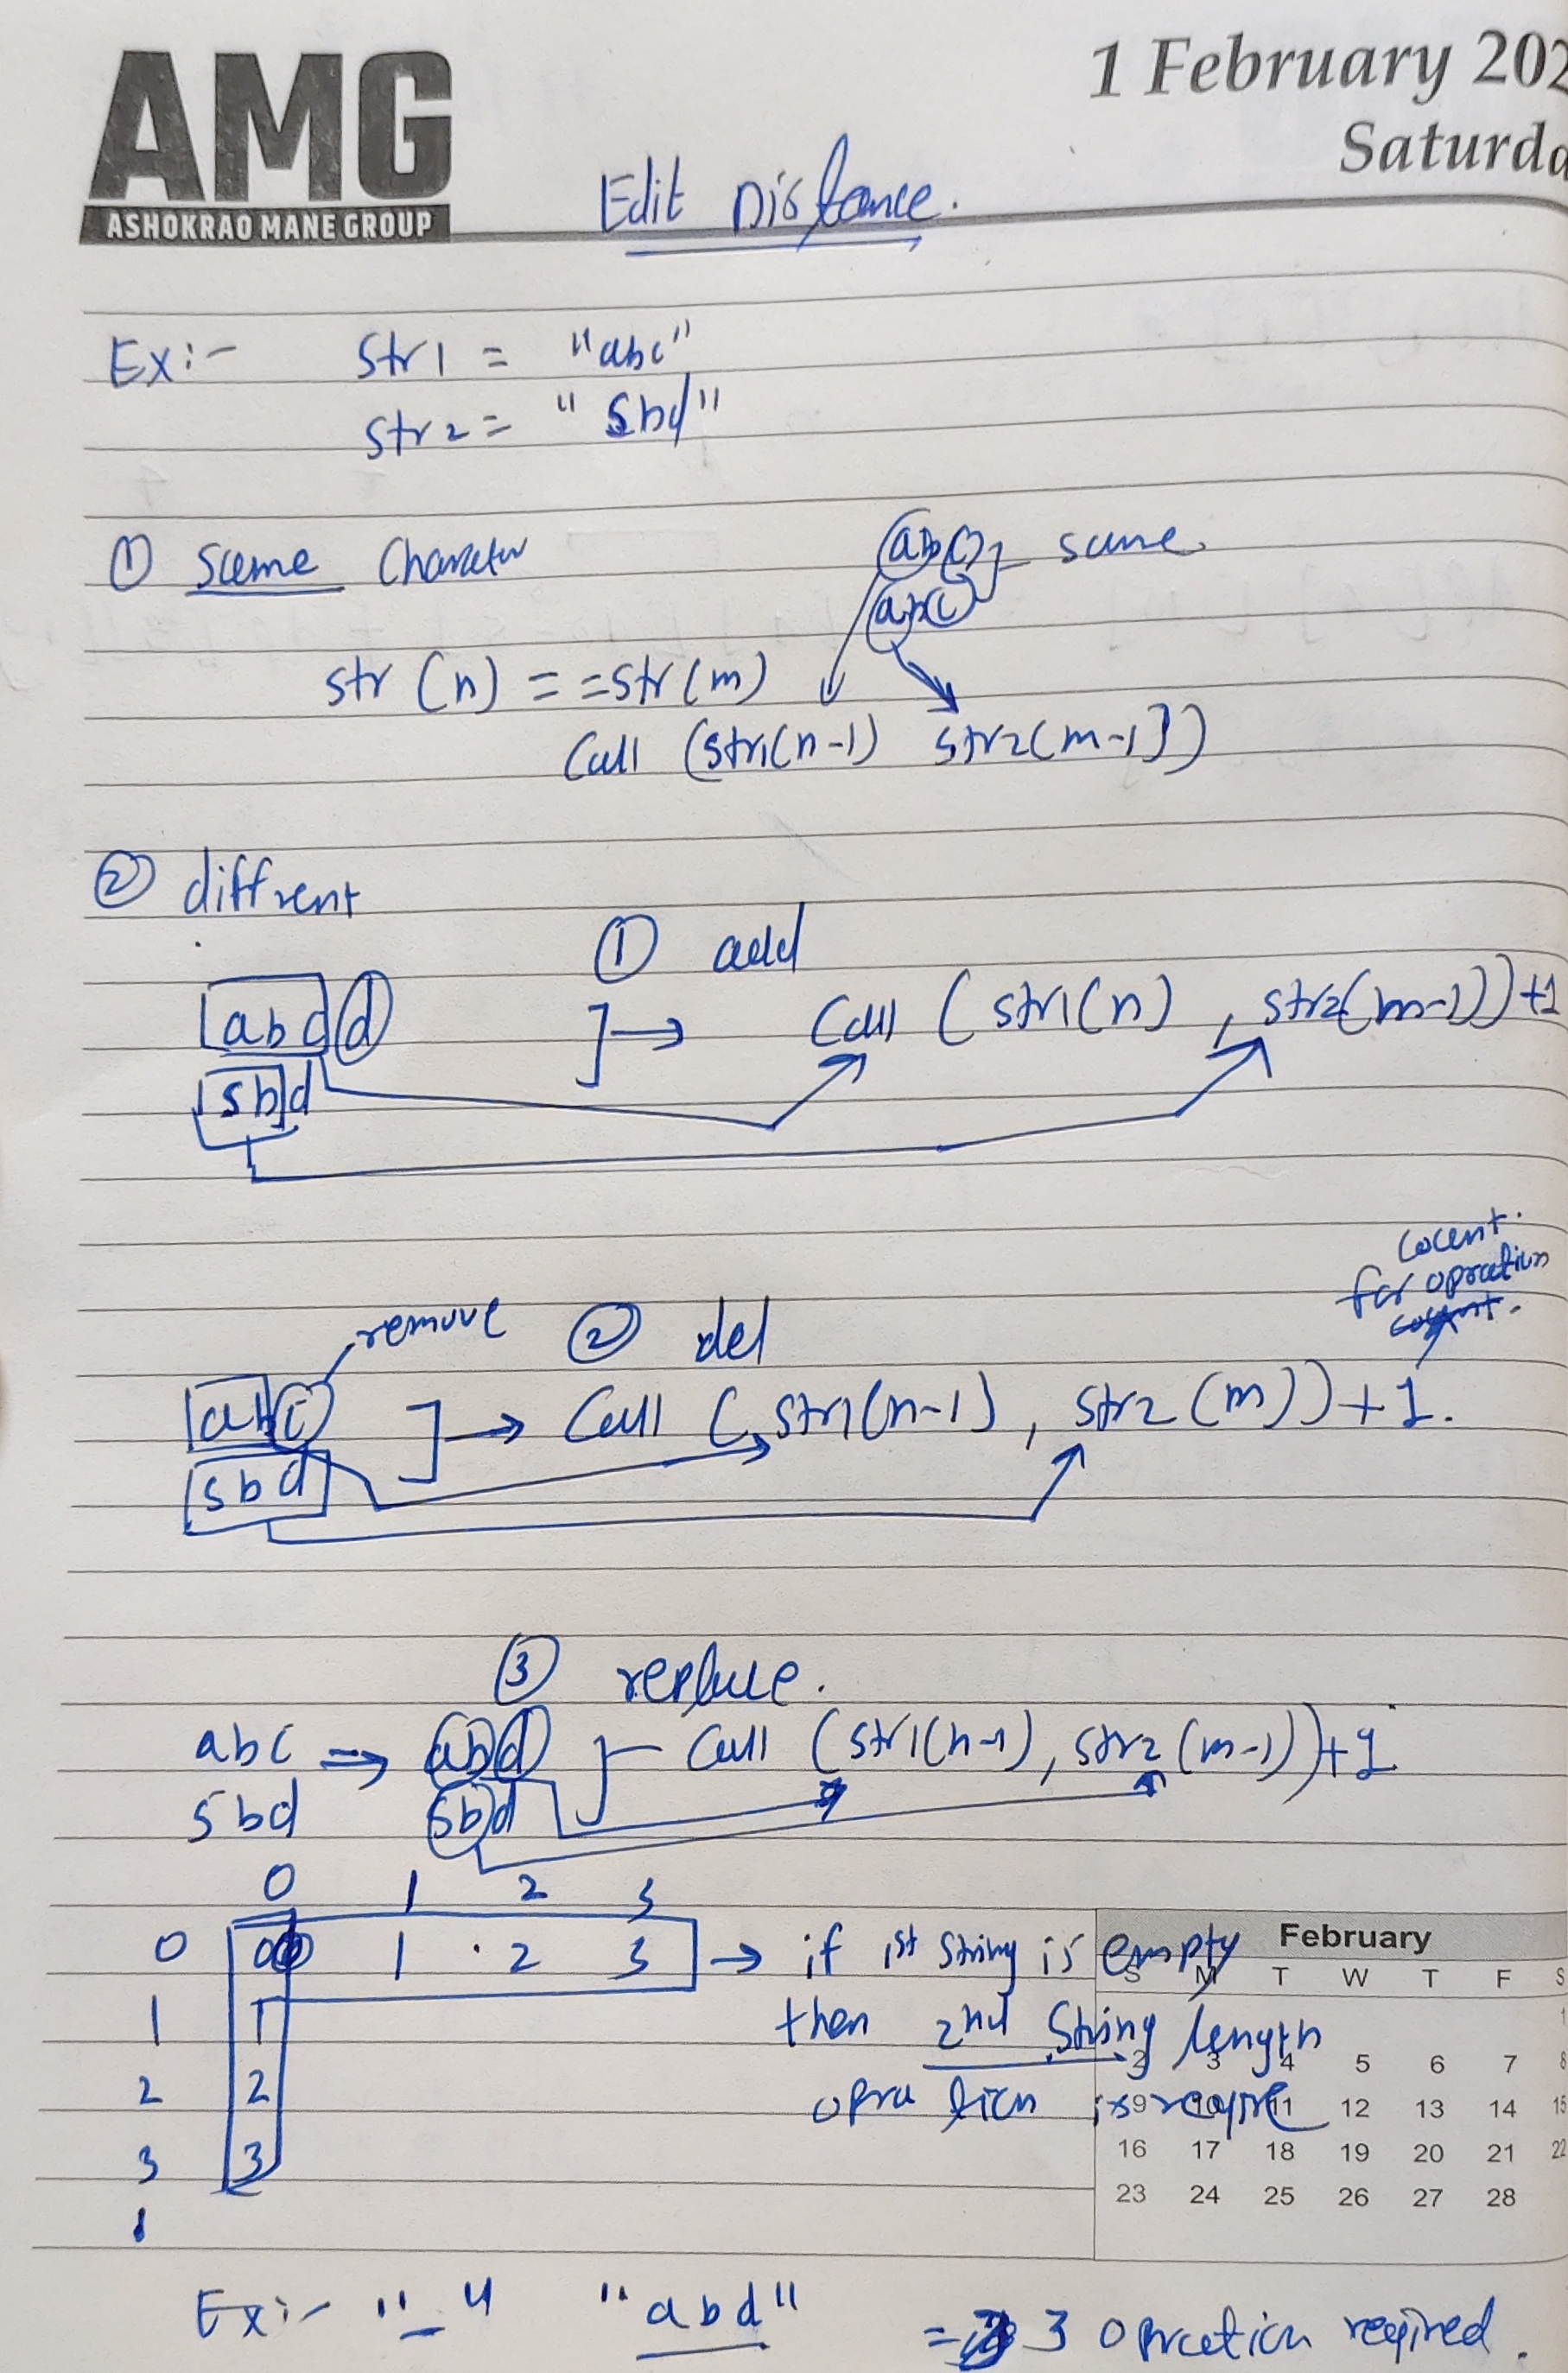 AMG
ASHOKRAO MANE GROUP
1 February 202
Saturda
Edit Distance.
Ex:- str1 = "abc"
str2 = "sbd"
① same Character
abc
abc
same
str (n) = = str (m)
Call (str1(n-1) str2(m-1))
② diffrent
① add
abcd
sbd
→ Call (str1(n) , str2(m-1)) +1
cocent.
for opration
remove
② del
abc
sbd
→ Call (str1(n-1) , str2 (m)) + 1.
③ replace.
abc ⇒ abd
sbd sbd
Call (str1(n-1), str2 (m-1)) + 1
0 1 2 3
0 0 1 2 3 → if 1st string is empty
1 1 then 2nd String length
2 2 opration is require
3 3
1
February
S M T W T F S
1
2 3 4 5 6 7 8
9 10 11 12 13 14 15
16 17 18 19 20 21 22
23 24 25 26 27 28
Ex:- "_" "abd" = 3 opration required.